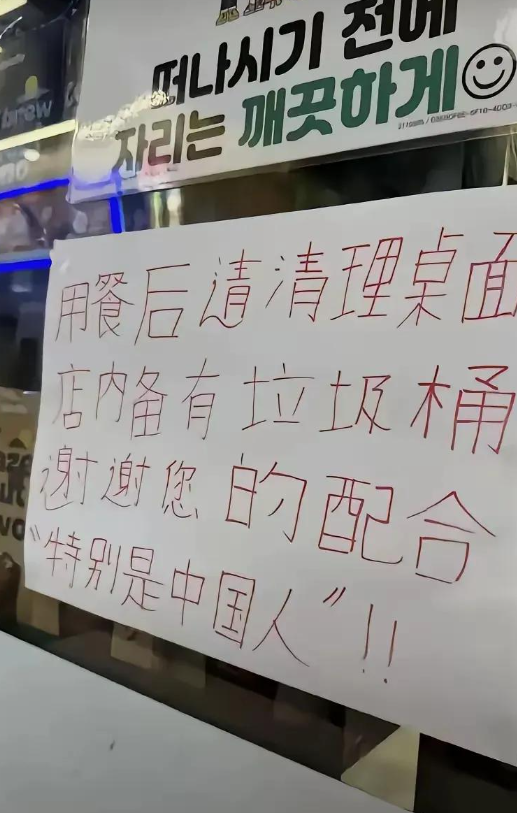 떠나시기 전에
자리는 깨끗하게
用餐后请清理桌面
店内备有垃圾桶
谢谢您的配合
“特别是中国人”!!